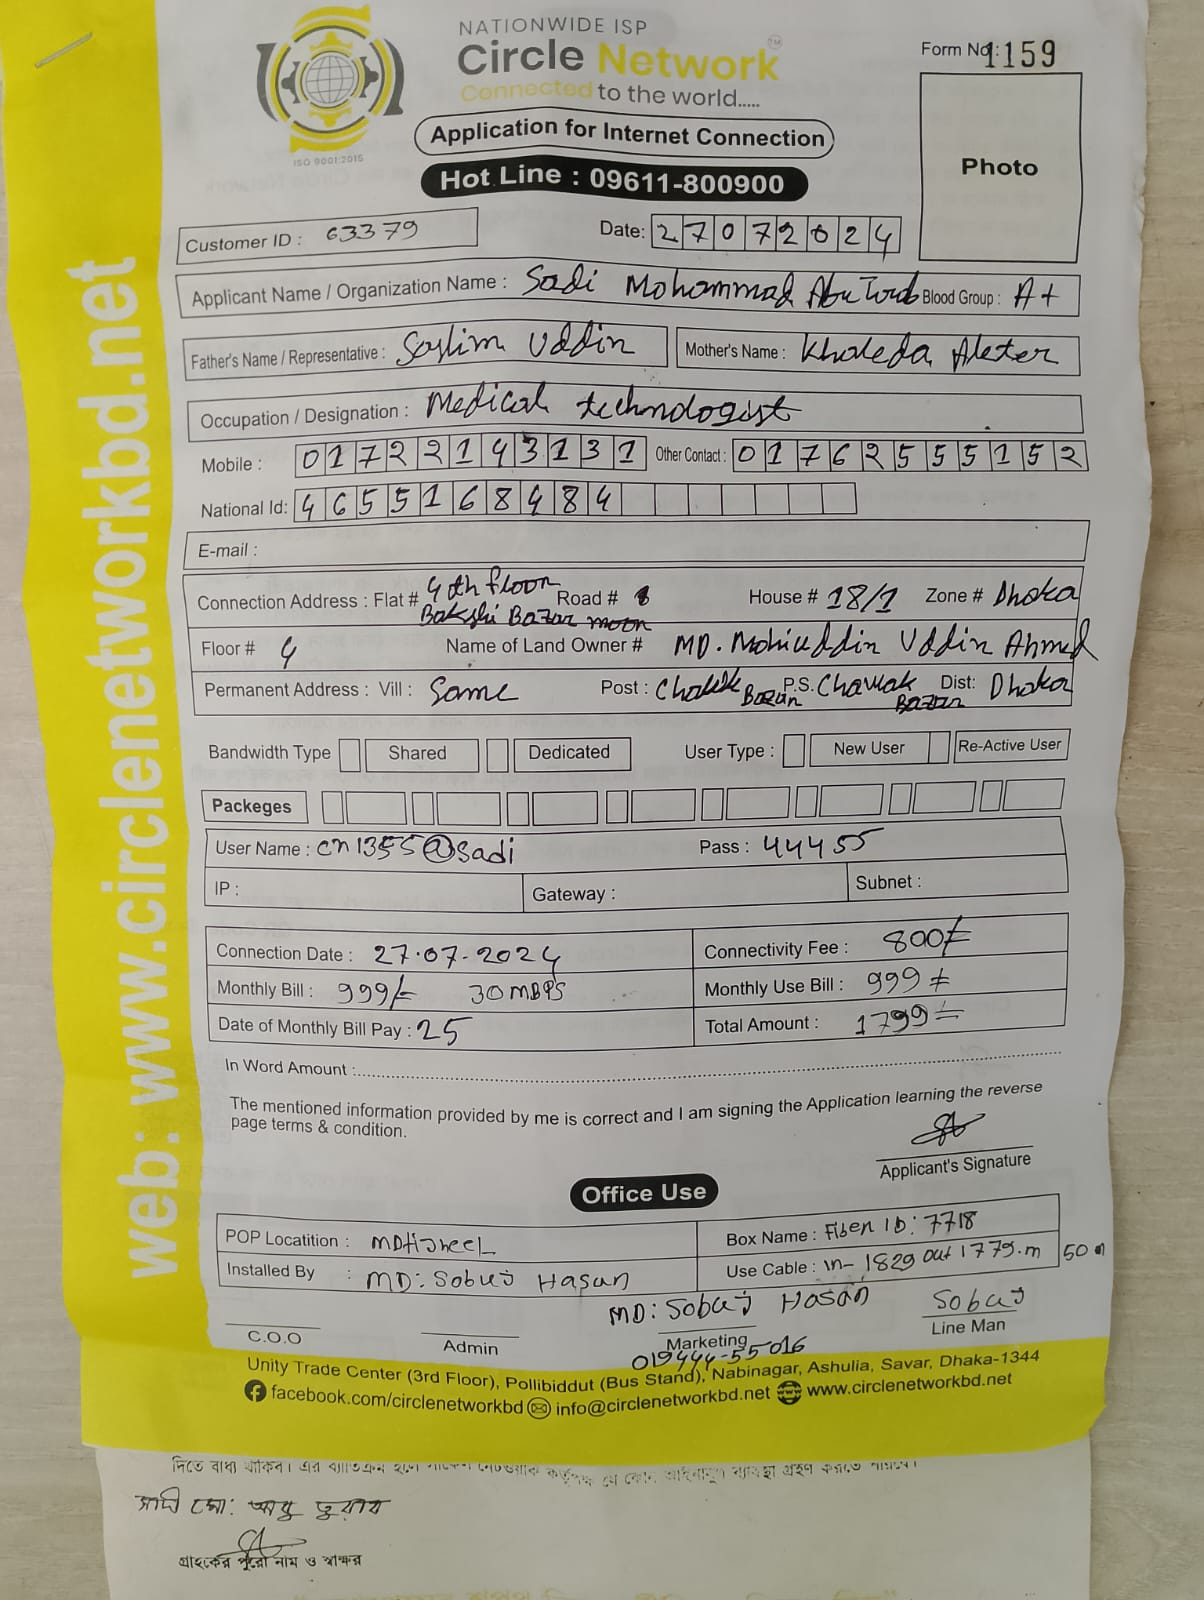 NATIONWIDE ISP
Circle Network™
Connected to the world.....
ISO 9001:2015
Form No: 1159
Application for Internet Connection
Hot Line : 09611-800900
Photo
web: www.circlenetworkbd.net
Customer ID : 63379
Date: 27072024
Applicant Name / Organization Name : Sadi Mohammad Abu Turab Blood Group : A+
Father's Name / Representative : Saylim Uddin Mother's Name : Khaleda Akter
Occupation / Designation : Medical technologist
Mobile : 01722143131 Other Contact : 01762555152
National Id: 4655168484
E-mail :
Connection Address : Flat # 4th floor Road # House # 18/1 Zone # Dhaka
Bakshi Bazar moon
Floor # 4 Name of Land Owner # MD. Mohiuddin Uddin Ahmed
Permanent Address : Vill : Same Post : Chawk Bazar P.S. Chawak Bazar Dist: Dhaka
Bandwidth Type Shared Dedicated User Type : New User Re-Active User
Packeges
User Name : cn1355@sadi Pass : 44455
IP : Gateway : Subnet :
Connection Date : 27.07.2024 Connectivity Fee : 800/=
Monthly Bill : 999/= 30MBPS Monthly Use Bill : 999/=
Date of Monthly Bill Pay : 25 Total Amount : 1799/=
In Word Amount :
The mentioned information provided by me is correct and I am signing the Application learning the reverse
page terms & condition.
Applicant's Signature
Office Use
POP Locatition : MOTIJHEEL Box Name : Fiber ID: 7718
Installed By : MD: Sobuj Hasan Use Cable : in- 1829 out 1779.m 50 m
MD: Sobuj Hasan Sobuj
C.O.O Admin Marketing Line Man
019444-55016
Unity Trade Center (3rd Floor), Pollibiddut (Bus Stand), Nabinagar, Ashulia, Savar, Dhaka-1344
facebook.com/circlenetworkbd info@circlenetworkbd.net www.circlenetworkbd.net
দিতে বাধ্য থাকিব। এর ব্যতিক্রম হলে সার্কেল নেটওয়ার্ক কর্তৃপক্ষ যে কোন আইনানুগ ব্যবস্থা গ্রহণ করতে পারবে।
সাদী মো: আবু তুরাব
গ্রাহকের পুরো নাম ও স্বাক্ষর